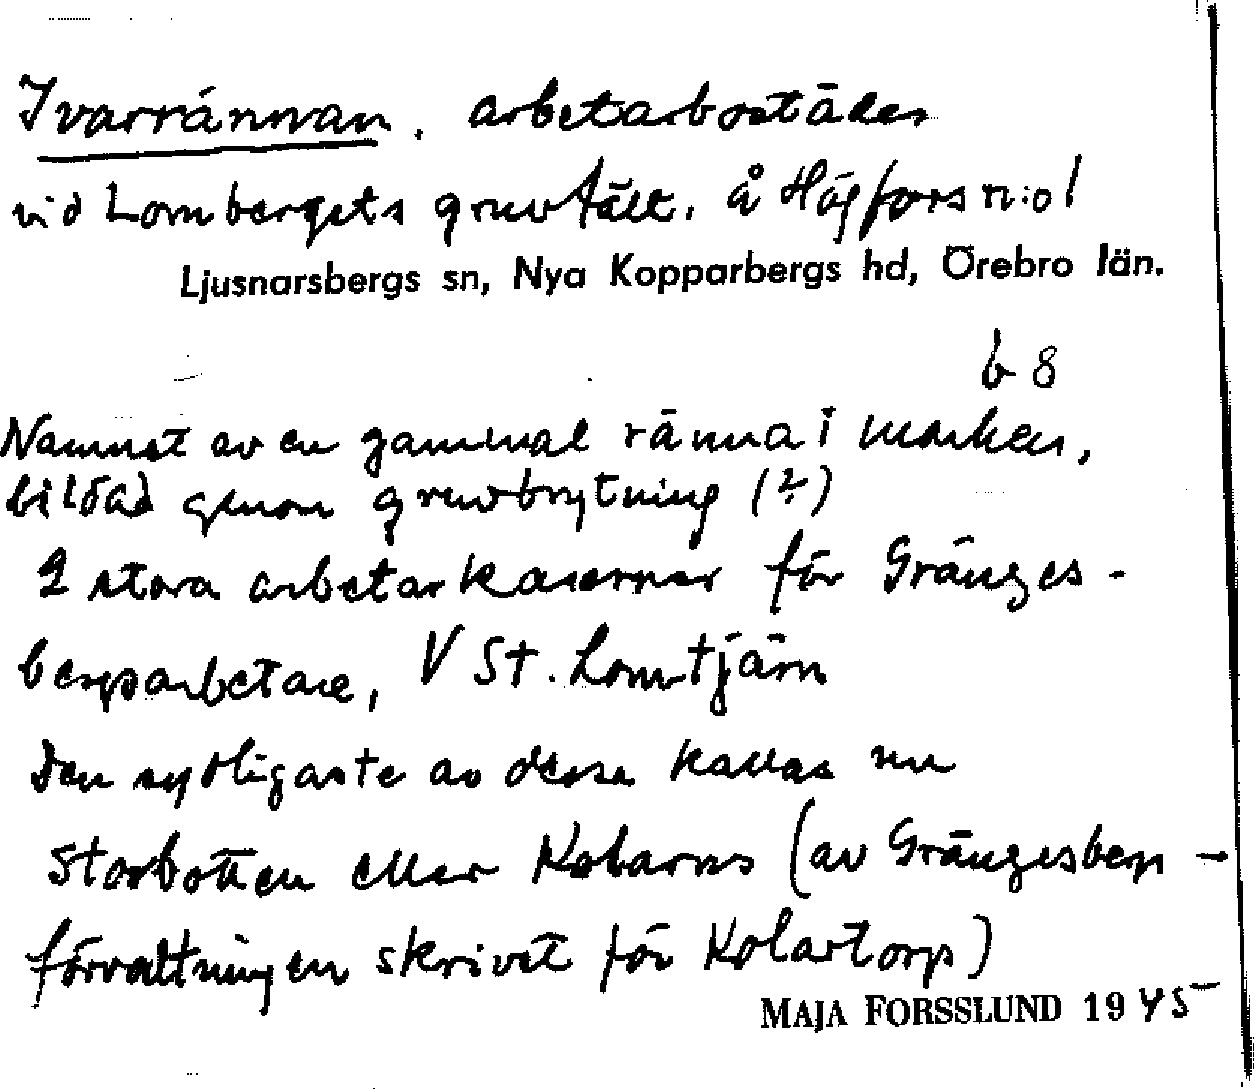 Ivarrännan. arbetarbostäder
vid Lombergets gruvfält. å Högfors n:o 1
Ljusnarsbergs sn, Nya Kopparbergs hd, Örebro län.
b 8
Namnet av en gammal ränna i marken,
bildad genom gruvbrytning (?)
2 stora arbetarkaserner för Gränges-
bergsarbetare, V St. Lomtjärn
Den sydligaste av dessa kallas nu
Storbotten eller Kolarns (av Grängesbergs-
förvaltningen skrivet för Kolartorp)
MAJA FORSSLUND 1945